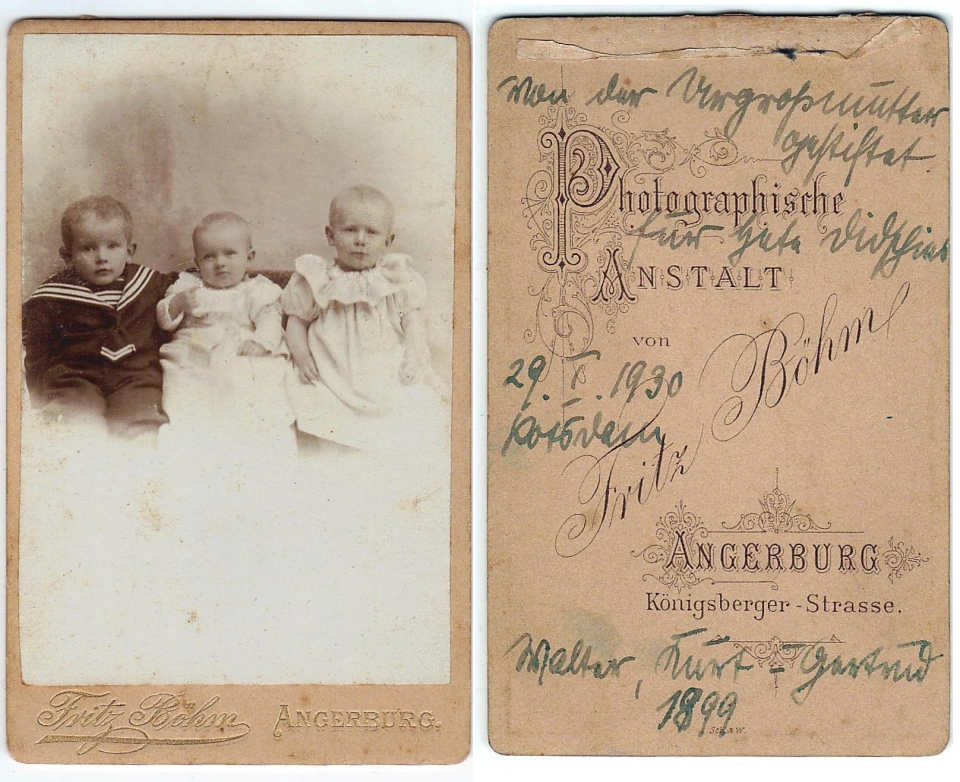 Fritz Böhm ANGERBURG.
Von der Urgroßmutter
gestiftet
Photographische
für
ANSTALT
von
Fritz Böhm
29. 1930
Potsdam
ANGERBURG
Königsberger-Strasse.
Walter, Kurt - Gertrud
1899